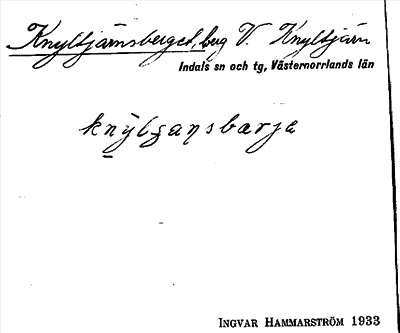 Knyltjärnsberget, berg V. Knyltjärn
Indals sn och tg, Västernorrlands län
knylʒaṇsbærja
INGVAR HAMMARSTRÖM 1933